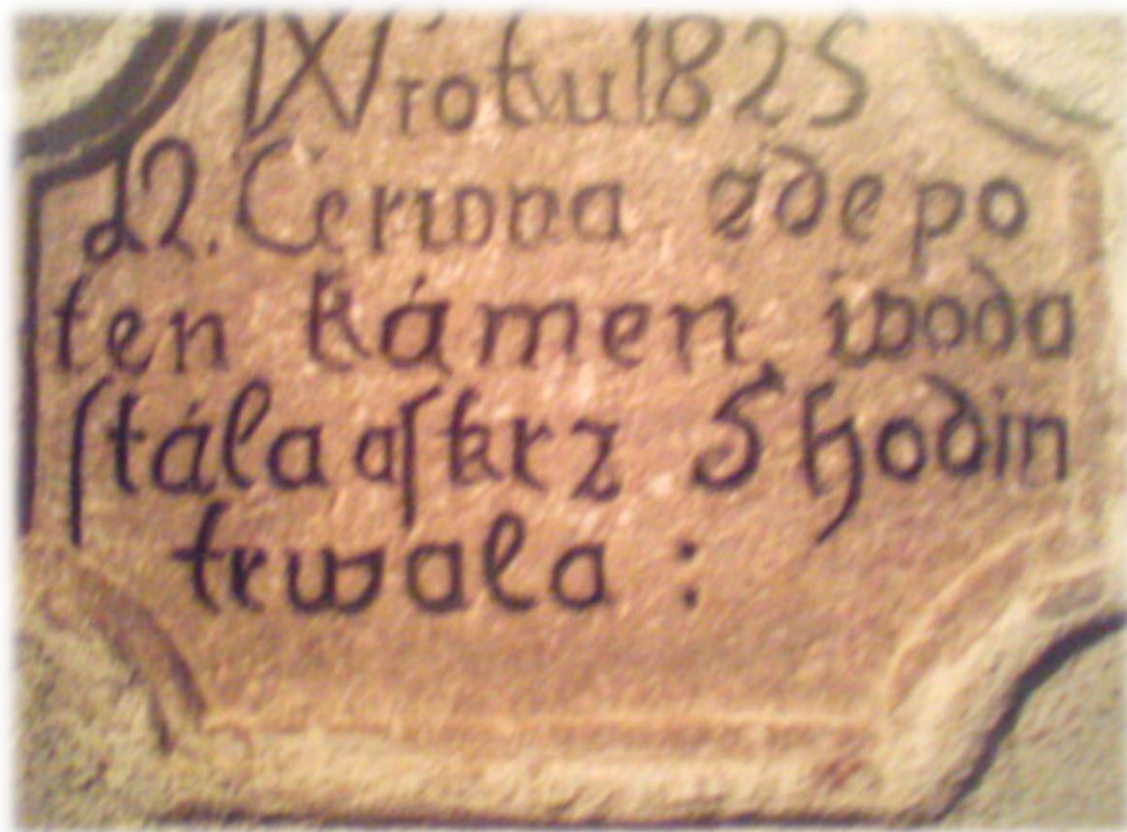 W roku 1825
d2. Cerwna zde po
ten kámen woda
ſtála a ſkrz 5 hodin
trwala :